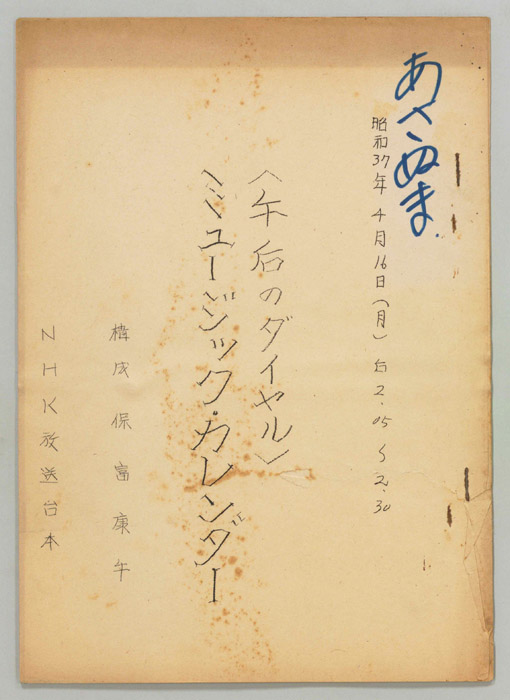 あさぬま.
昭和37年4月16日(月)后2.05〜2.30
〈午后のダイヤル〉
ミュージック・カレンダー
構成 保富康午
NHK放送台本